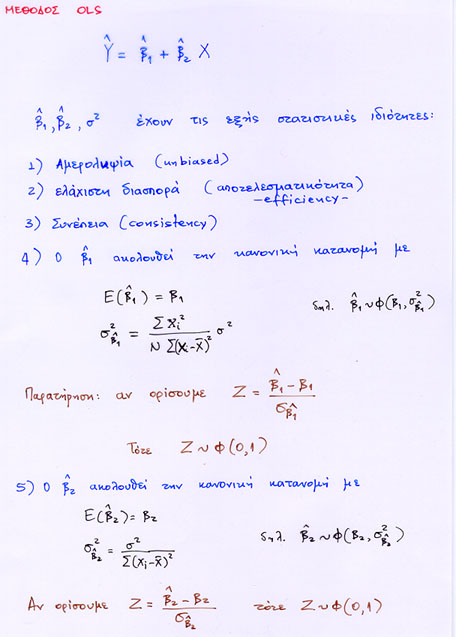 ΜΕΘΟΔΟΣ OLS
Ŷ = β̂₁ + β̂₂ X
β̂₁, β̂₂, σ² έχουν τις εξής στατιστικές ιδιότητες:
1) Αμεροληψία (unbiased)
2) ελάχιστη διασπορά (αποτελεσματικότητα)
-efficiency-
3) Συνέπεια (consistency)
4) Ο β̂₁ ακολουθεί την κανονική κατανομή με
E(β̂₁) = β₁
δηλ. β̂₁ ~ Φ(β₁, σ²_β̂₁)
σ²_β̂₁ = ΣXᵢ² / (N Σ(Xᵢ-X̄)²) σ²
Παρατήρηση: αν ορίσουμε Z = (β̂₁ - β₁) / σ_β̂₁
Τότε Z ~ Φ(0,1)
5) Ο β̂₂ ακολουθεί την κανονική κατανομή με
E(β̂₂) = β₂
δηλ. β̂₂ ~ Φ(β₂, σ²_β̂₂)
σ²_β̂₂ = σ² / Σ(Xᵢ-X̄)²
Αν ορίσουμε Z = (β̂₂ - β₂) / σ_β̂₂ τότε Z ~ Φ(0,1)